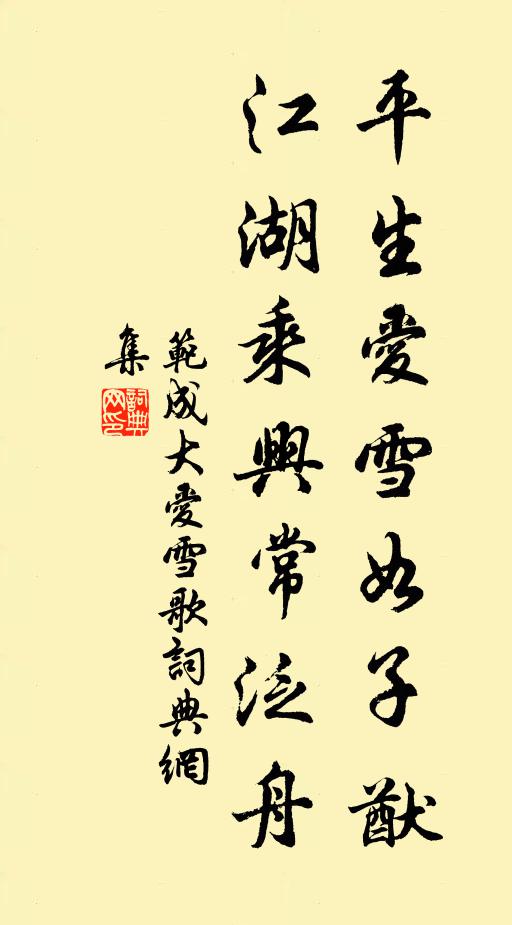 平生愛雪如子猷
江湖乘興常泛舟
範成大愛雪歌詞典網
集
詞典
网印